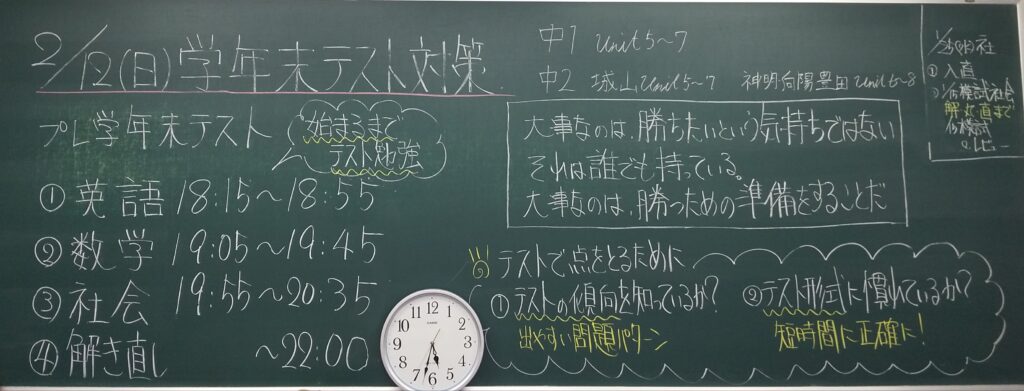 2/12(日)学年末テスト対策
プレ学年末テスト
始まるまで
テスト勉強
①英語 18:15〜18:55
②数学 19:05〜19:45
③社会 19:55〜20:35
④解き直し 〜22:00
中1 Unit5〜7
中2 城山Unit5〜7 神明向陽豊田Unit6〜8
大事なのは、勝ちたいという気持ちではない
それは誰でも持っている。
大事なのは、勝つための準備をすることだ
テストで点をとるために
①テストの傾向を知っているか?
出やすい問題パターン
②テスト形式に慣れているか?
短時間に正確に!
社
入直
模試社会
解き直しまで
CASIO
12
1
2
3
4
5
6
7
8
9
10
11